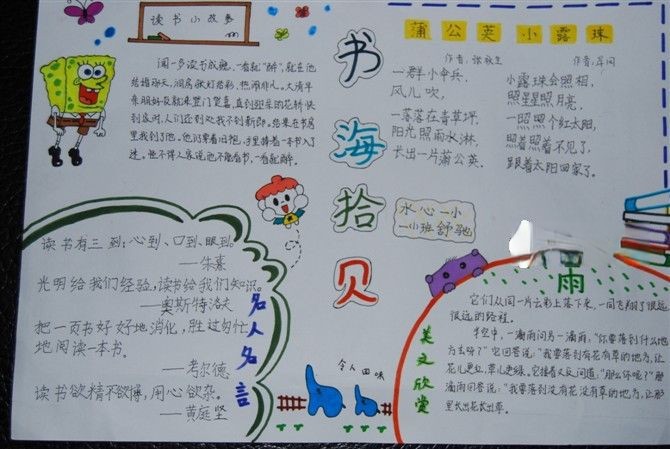 读书小故事
闻一多读书成瘾，一看就"醉"，就在他
结婚那天，洞房张灯结彩，热闹非凡。大清早
亲朋好友都来登门贺喜，直到迎亲的花轿快
到家时，人们还到处找不到新郎。结果在书房
里找到了他，他仍穿着旧袍，手里捧着一本书入了
迷。怪不得人家说他不能看书，一看就醉。
书
海
拾
贝
蒲公英
作者：张秋生
一群小伞兵，
风儿吹，
一落落在青草坪，
阳光照雨水淋，
长出一片蒲公英。
小露珠
小露珠会照相，
照星星照月亮，
一照照个红太阳，
照着照着不见了，
跟着太阳回家了。
水心一小
一小班 舒驰
读书有三到：心到、口到、眼到。
——朱熹
光明给我们经验，读书给我们知识。
——奥斯特洛夫
把一页书好好地消化，胜过匆忙
地阅读一本书。
——考尔德
读书欲精不欲博，用心欲杂。
——黄庭坚
名人名言
令人回味
美文欣赏
雨
它们从同一片云彩上落下来，一同飞翔了很远
很远的路程。
半空中，一滴雨问另一滴雨，"你要落到什么地
方去呀？"它回答说："我要落到有花有草的地方，让
花儿更红，草儿更绿。它接着又反问道，"那么你呢？"那
滴雨回答说："我要落到没有花没有草的地方，让那
里长出花长出草。